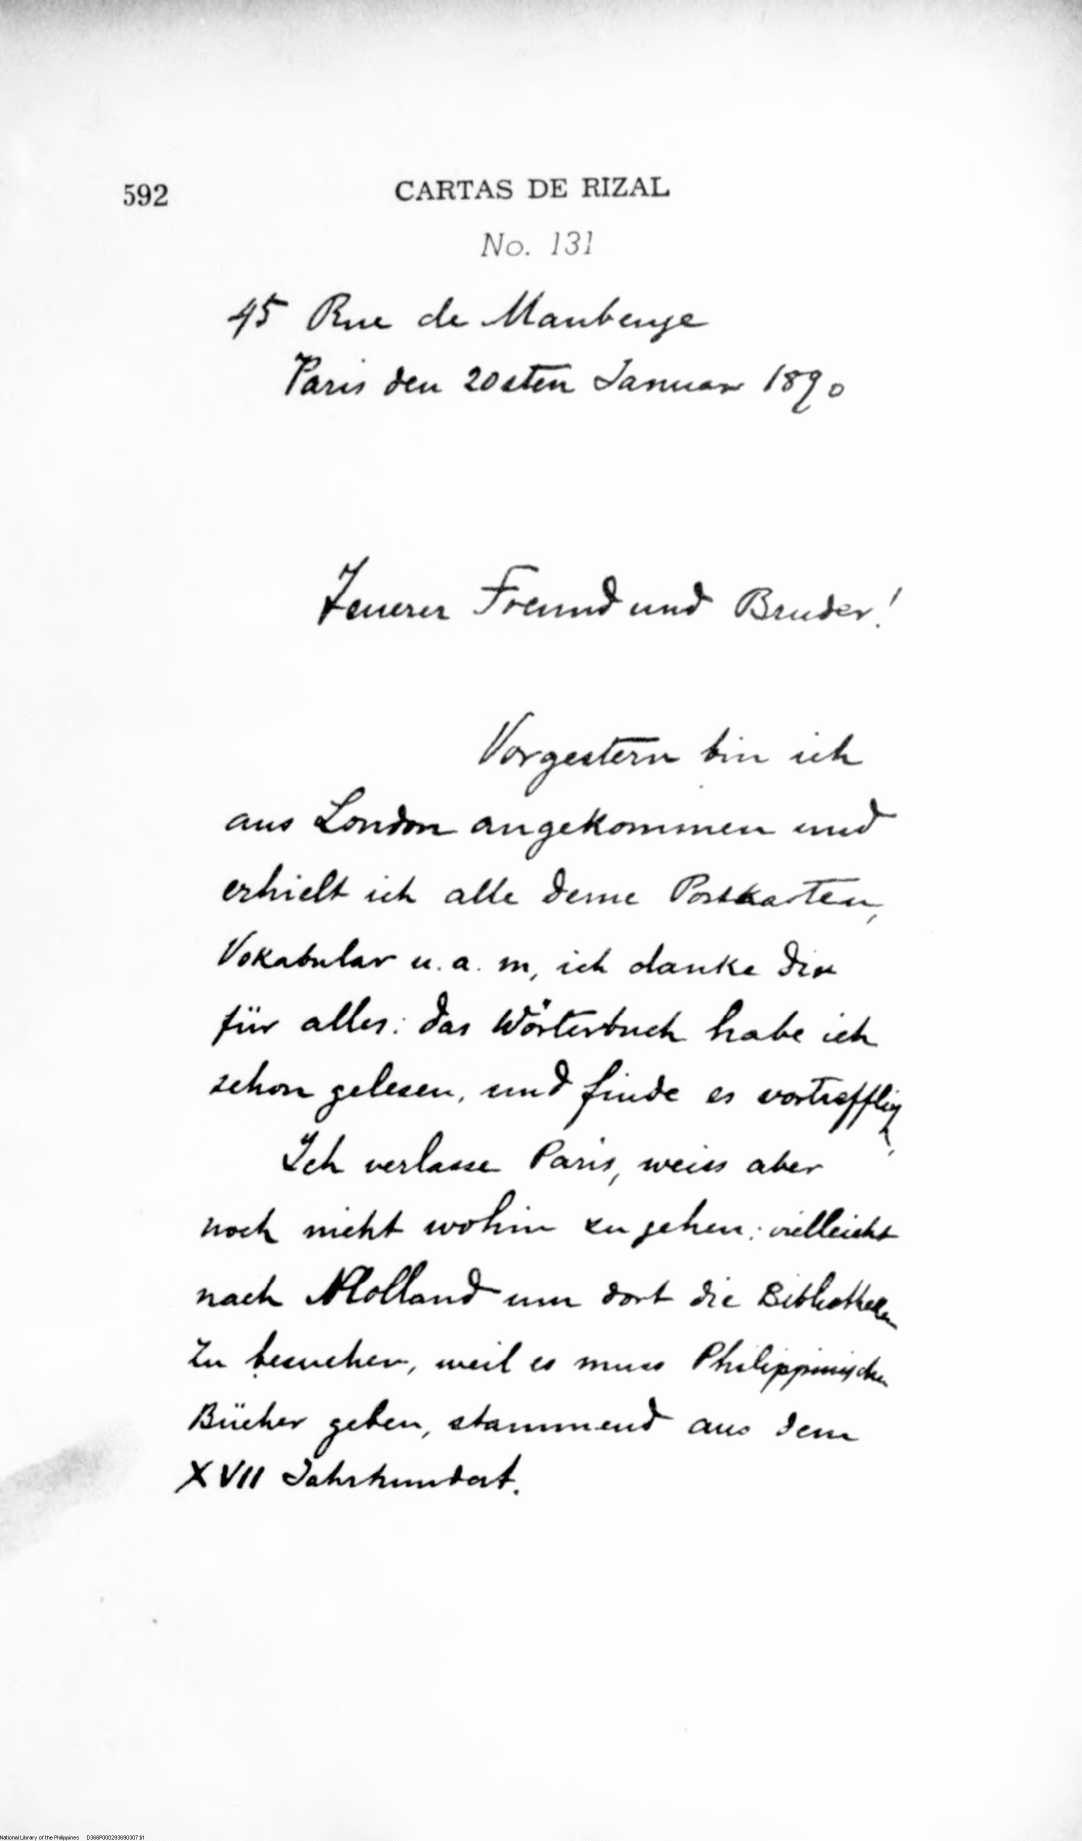 592 CARTAS DE RIZAL
No. 131
45 Rue de Maubeuge
Paris den 20sten Januar 1890
Teuerer Freund und Bruder!
Vorgestern bin ich
aus London angekommen und
erhielt ich alle deine Postkarten,
Vokabular u. a. m, ich danke dir
für alles: das Wörterbuch habe ich
schon gelesen, und finde es vortrefflich,
Ich verlasse Paris, weiss aber
noch nicht wohin zu gehen: vielleicht
nach Holland um dort die Bibliotheken
zu besuchen, weil es muss Philippinischen
Bücher geben, stammend aus dem
XVII Jahrhundert.
National Library of the Philippines